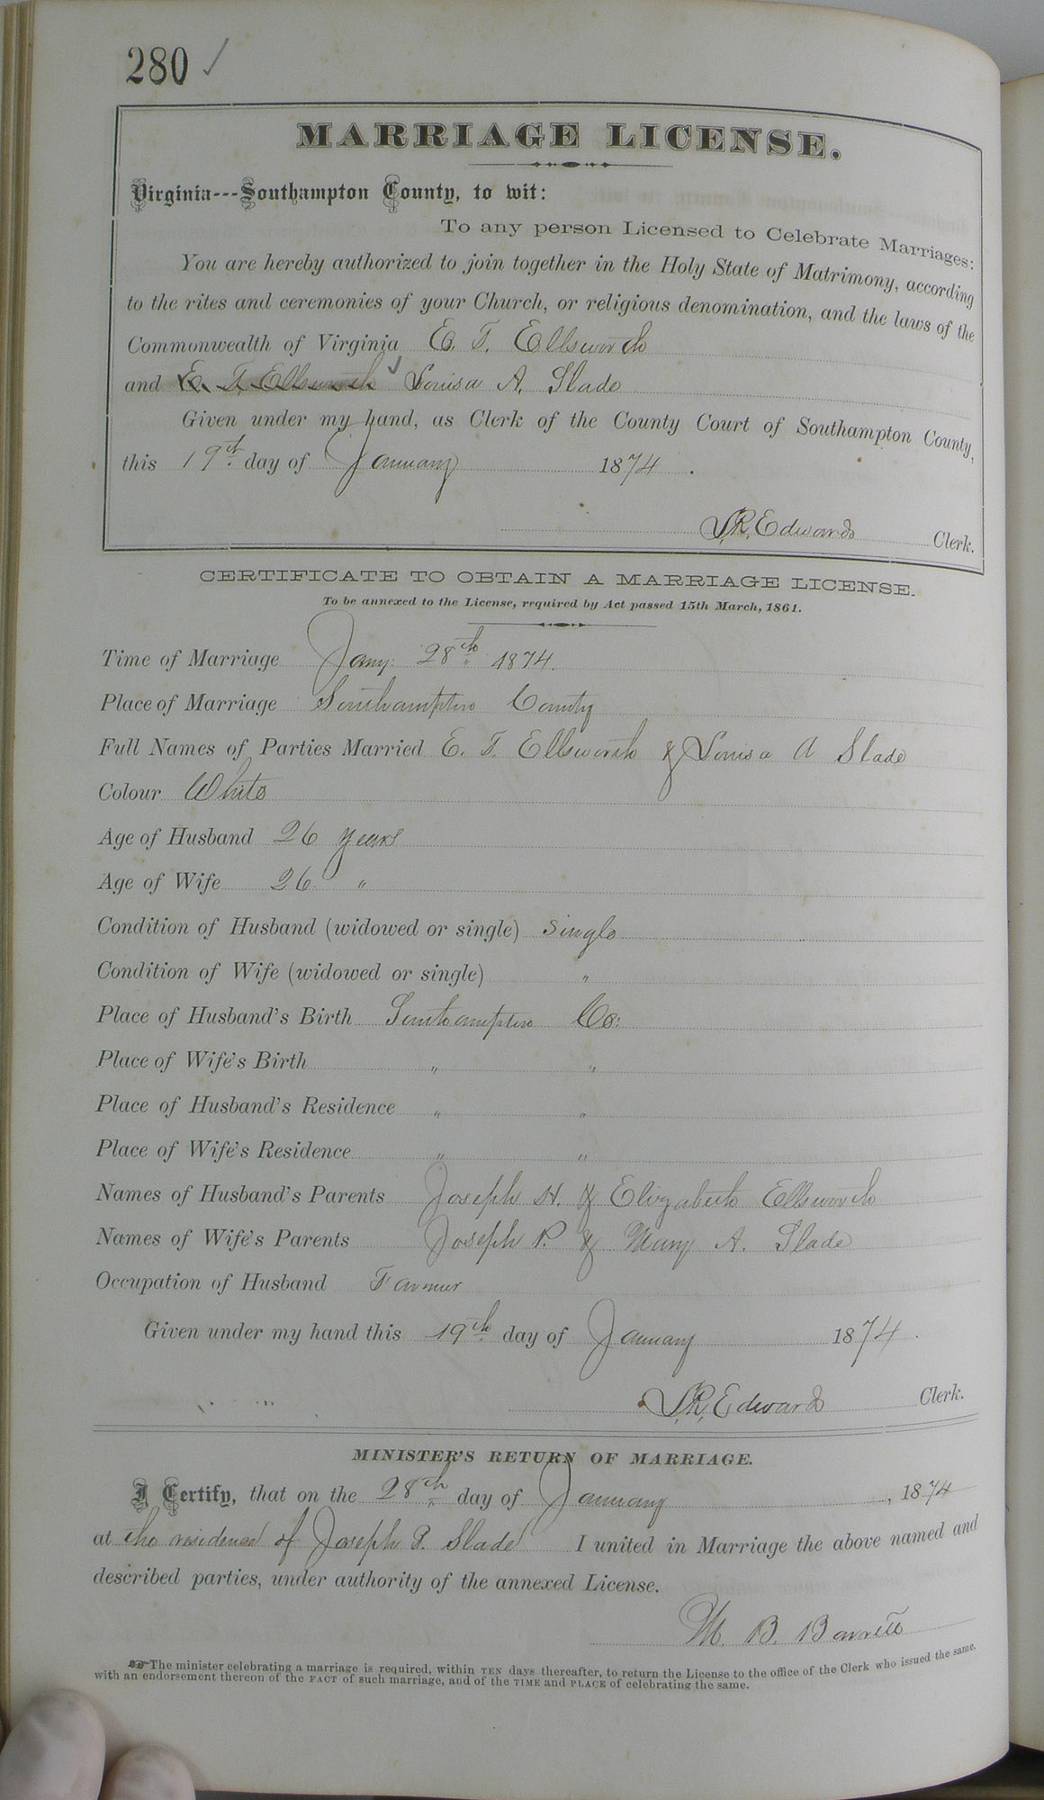 280 ✓
MARRIAGE LICENSE.
Virginia---Southampton County, to wit:
To any person Licensed to Celebrate Marriages:
You are hereby authorized to join together in the Holy State of Matrimony, according
to the rites and ceremonies of your Church, or religious denomination, and the laws of the
Commonwealth of Virginia E. T. Ellsworth
and E. T. Ellsworth Louisa A. Slade
Given under my hand, as Clerk of the County Court of Southampton County,
this 19th day of January 1874.
L. R. Edwards Clerk.
CERTIFICATE TO OBTAIN A MARRIAGE LICENSE.
To be annexed to the License, required by Act passed 15th March, 1861.
Time of Marriage Jany: 28th 1874.
Place of Marriage Southampton County
Full Names of Parties Married E. T. Ellsworth & Louisa A Slade
Colour White
Age of Husband 26 years
Age of Wife 26 "
Condition of Husband (widowed or single) single
Condition of Wife (widowed or single) "
Place of Husband's Birth Southampton Co:
Place of Wife's Birth " "
Place of Husband's Residence " "
Place of Wife's Residence " "
Names of Husband's Parents Joseph H. & Elizabeth Ellsworth
Names of Wife's Parents Joseph P. & Mary A. Slade
Occupation of Husband Farmer
Given under my hand this 19th day of January 1874.
L. R. Edwards Clerk.
MINISTER'S RETURN OF MARRIAGE.
I Certify, that on the 28th day of January, 1874
at the residence of Joseph P. Slade I united in Marriage the above named and
described parties, under authority of the annexed License.
M. B. Barrett
☞The minister celebrating a marriage is required, within TEN days thereafter, to return the License to the office of the Clerk who issued the same.
with an endorsement thereon of the FACT of such marriage, and of the TIME and PLACE of celebrating the same.